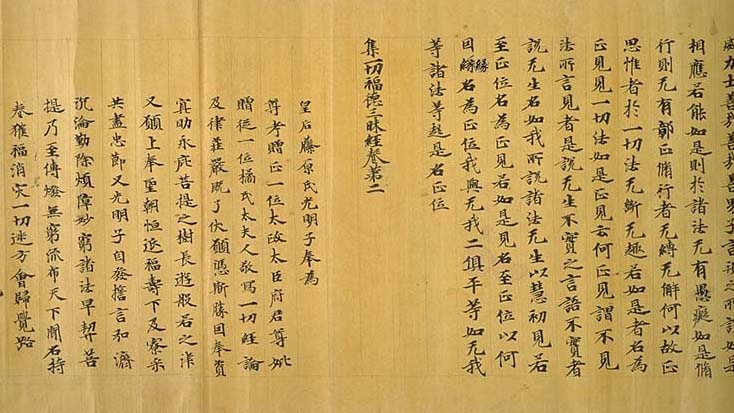 相應若能如是則於諸法无有愚癡如是脩
行則无有鄣正脩行者无縛无解何以故正
思惟者於一切法无斷无趣若如是者名為
正見見一切法如是正見云何正見謂不見
法所言見者是說无生不實之言語不實者
說无生名如我所說諸法无生以慧初見若
至正位名為正見若如是見名至正位以何
因緣名為正位我與无我二俱平等如无我
等諸法等起是名正位
集一切福德三昧經卷第二
皇后藤原氏光明子奉為
尊考贈正一位太政太臣府君尊妣
贈從一位橘氏太夫人敬寫一切經論
及律莊嚴既了伏願憑斯勝因奉資
冥助永庇菩提之樹長遊般若之津
又願上奉聖朝恒延福壽下及寮采
共盡忠節又光明子自發擔言弘濟
沉淪勤除煩障妙窮諸法早契菩
提乃至傳燈無窮流布天下聞名持
卷獲福消灾一切迷方會歸覺路